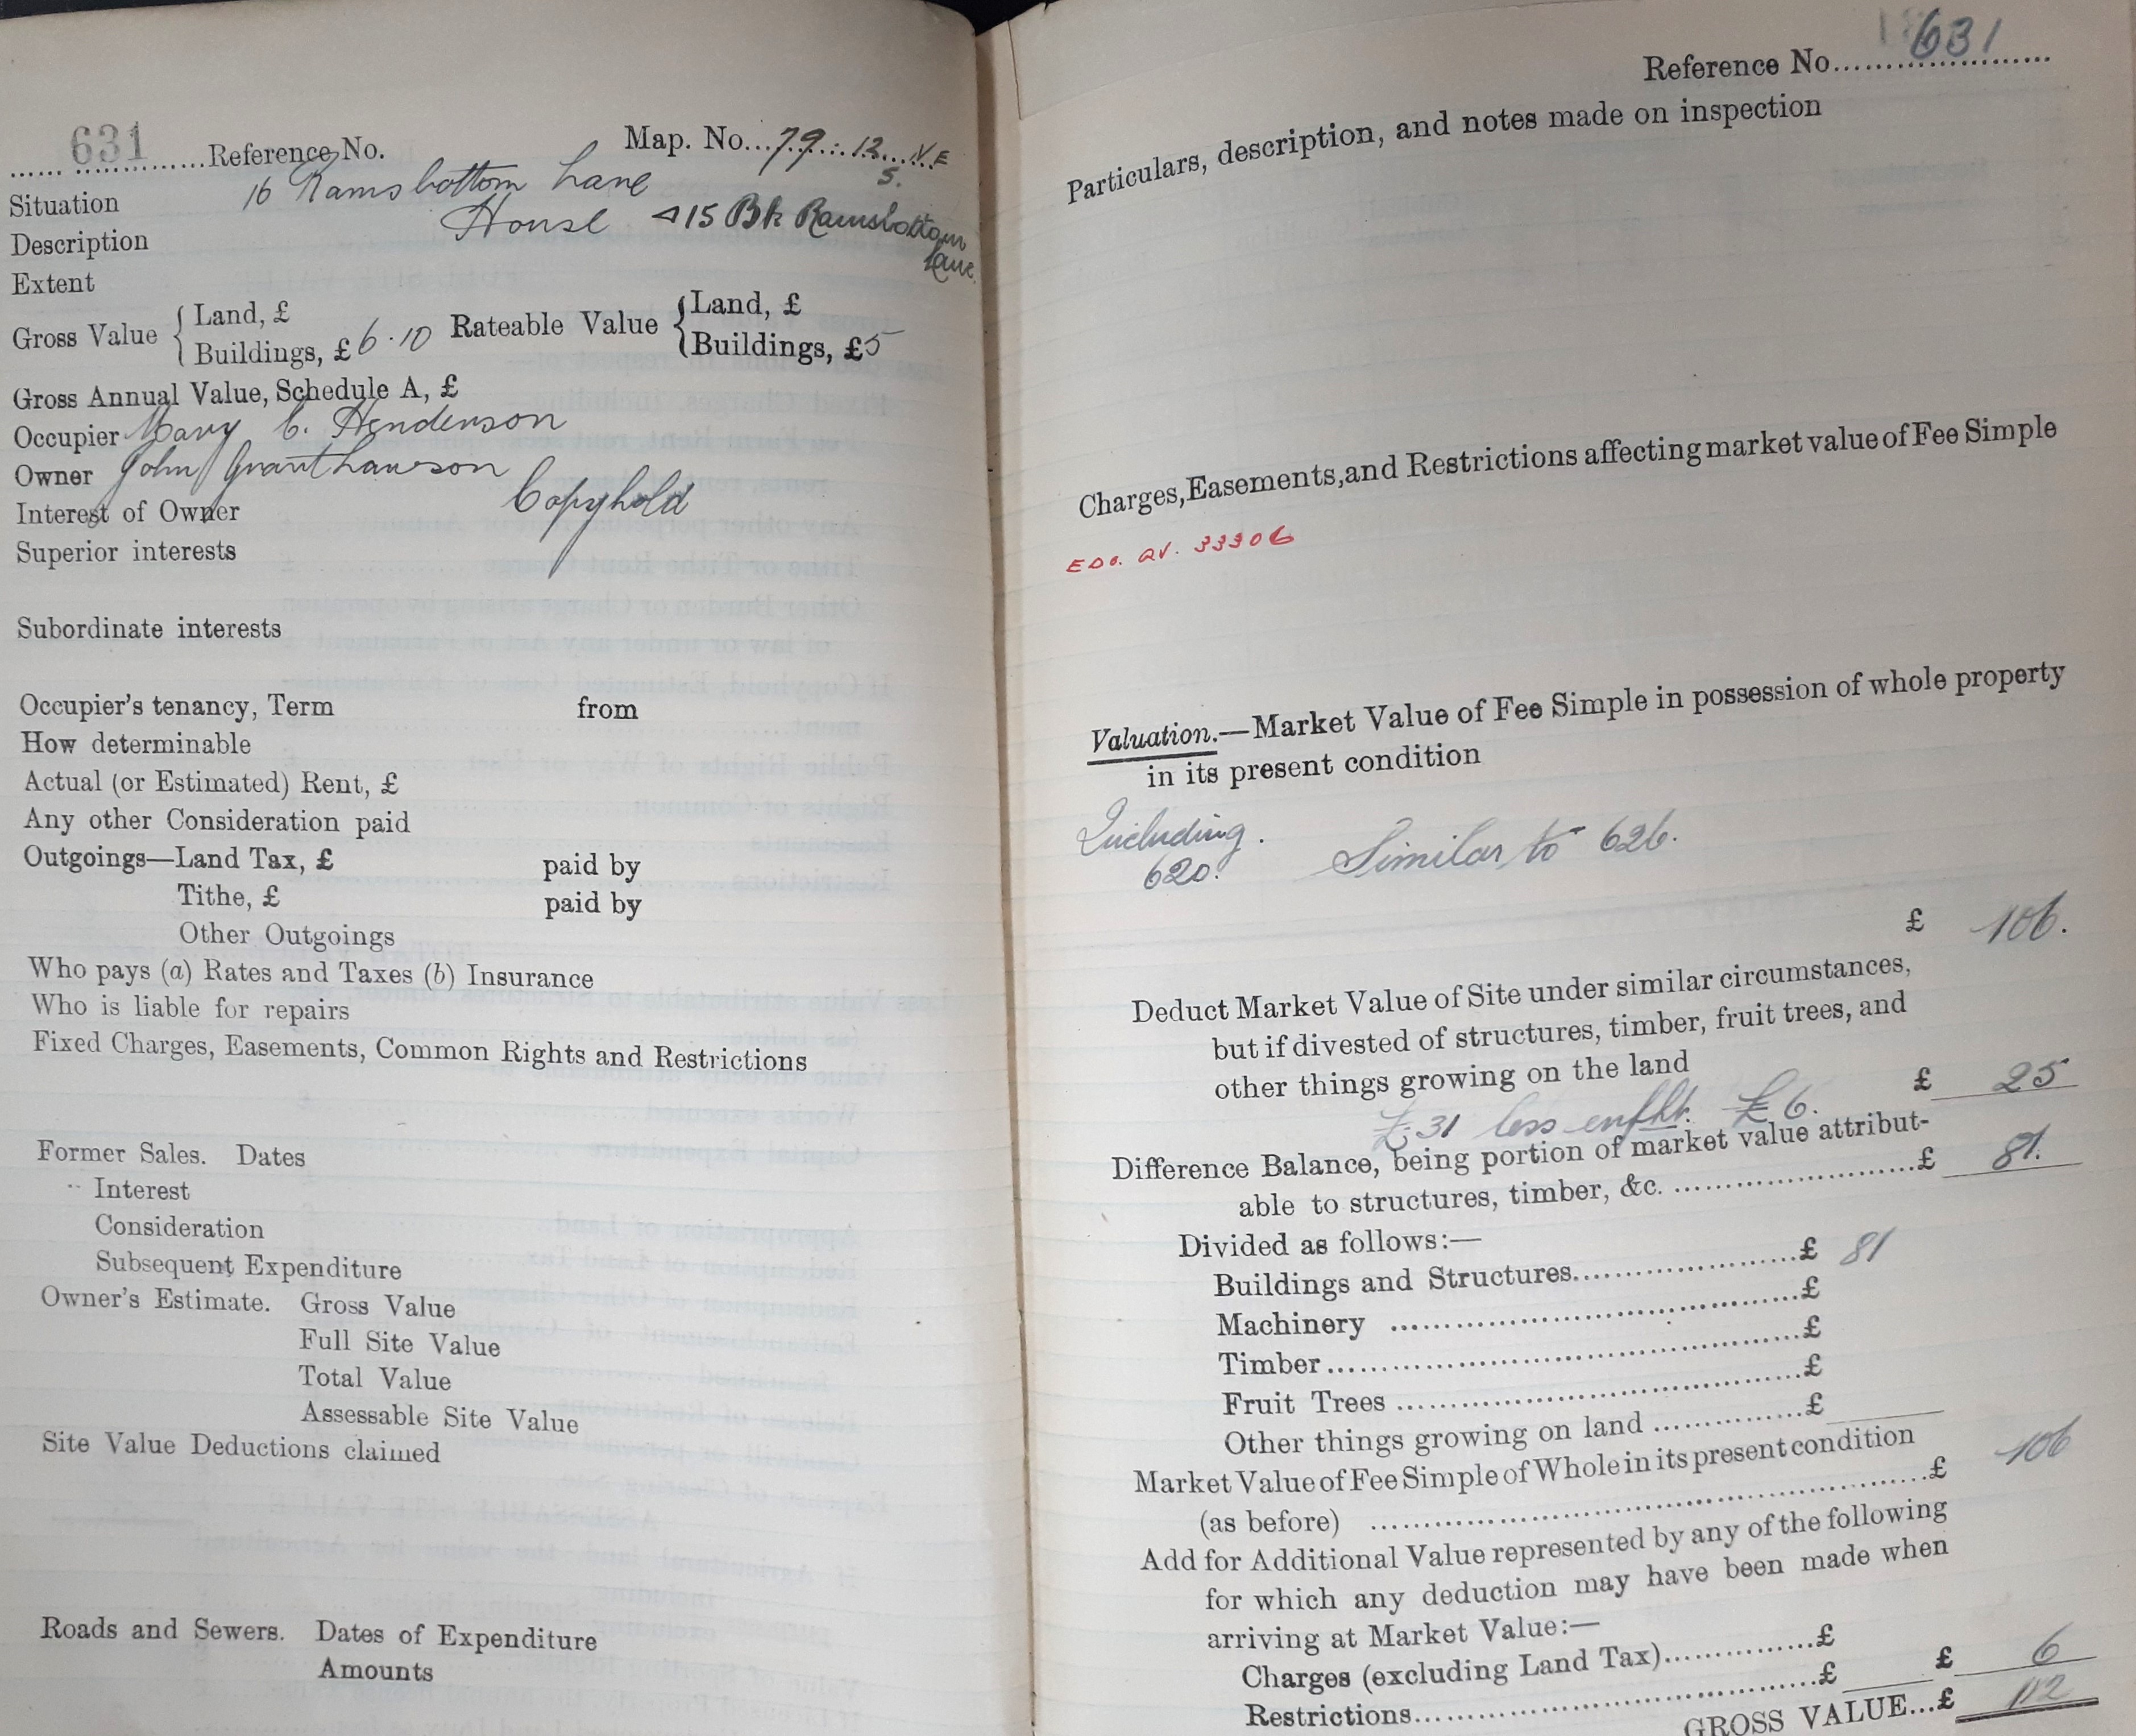 631 Reference No. Map. No. 79.:.12. N.E
S.
Situation 16 Ramsbottom Lane
Description House & 15 Bk Ramsbottom
Lane.
Extent
Gross Value { Land, £
Buildings, £ 6.10 Rateable Value { Land, £
Buildings, £5
Gross Annual Value, Schedule A, £
Occupier Mary C. Henderson
Owner John Grant Lawson
Interest of Owner Copyhold
Superior interests
Subordinate interests
Occupier's tenancy, Term from
How determinable
Actual (or Estimated) Rent, £
Any other Consideration paid
Outgoings—Land Tax, £ paid by
Tithe, £ paid by
Other Outgoings
Who pays (a) Rates and Taxes (b) Insurance
Who is liable for repairs
Fixed Charges, Easements, Common Rights and Restrictions
Former Sales. Dates
Interest
Consideration
Subsequent Expenditure
Owner's Estimate. Gross Value
Full Site Value
Total Value
Assessable Site Value
Site Value Deductions claimed
Roads and Sewers. Dates of Expenditure
Amounts
Reference No. 631
Particulars, description, and notes made on inspection
Charges, Easements, and Restrictions affecting market value of Fee Simple
33306
Valuation.—Market Value of Fee Simple in possession of whole property
in its present condition
Including.
620. Similar to 626.
£ 106.
Deduct Market Value of Site under similar circumstances,
but if divested of structures, timber, fruit trees, and
other things growing on the land £ 25
£31 less £6.
Difference Balance, being portion of market value attribut-
able to structures, timber, &c. £ 81.
Divided as follows:—
Buildings and Structures £ 81
Machinery £
Timber £
Fruit Trees £
Other things growing on land £
Market Value of Fee Simple of Whole in its present condition
(as before) £ 106
Add for Additional Value represented by any of the following
for which any deduction may have been made when
arriving at Market Value:—
Charges (excluding Land Tax) £
Restrictions £ £ 6
GROSS VALUE...£ 112